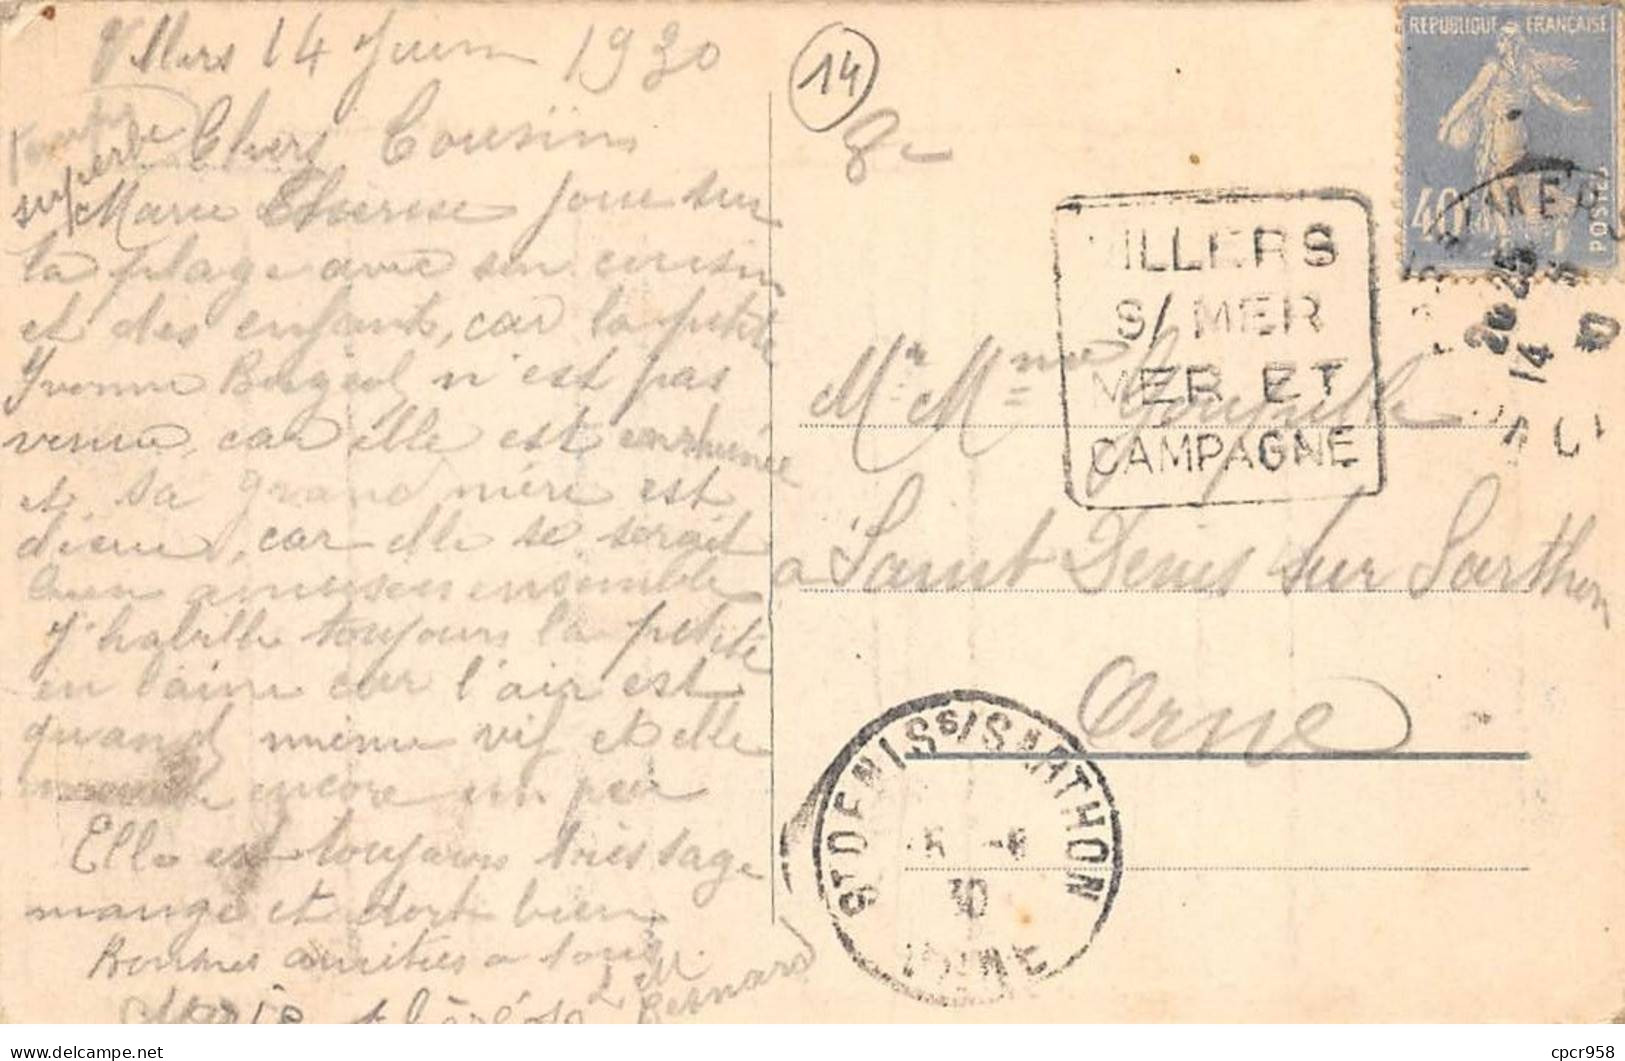 Villers 14 Juin 1930
temps
superbe
Chers Cousins
Marie Thérèse joue sur
la plage avec son cousin
et des enfants, car la petite
Yvonne n'est pas
venue, car elle est enrhumée
et sa grand mère est
, car elle se serait
bien amusée ensemble
J'habille toujours la petite
en laine car l'air est
quand même vif et elle
encore un peu
Elle est toujours très sage
mange et dort bien
Bonnes amitiés a tous
Marie thérèse
Bernard
14
REPUBLIQUE FRANÇAISE
40
POSTES
VILLERS
S/ MER
MER ET
CAMPAGNE
20 25
14
Mr Mme
a Saint Denis sur Sarthon
Orne
ST DENIS S/SARTHON
30
ORNE
cpcr958